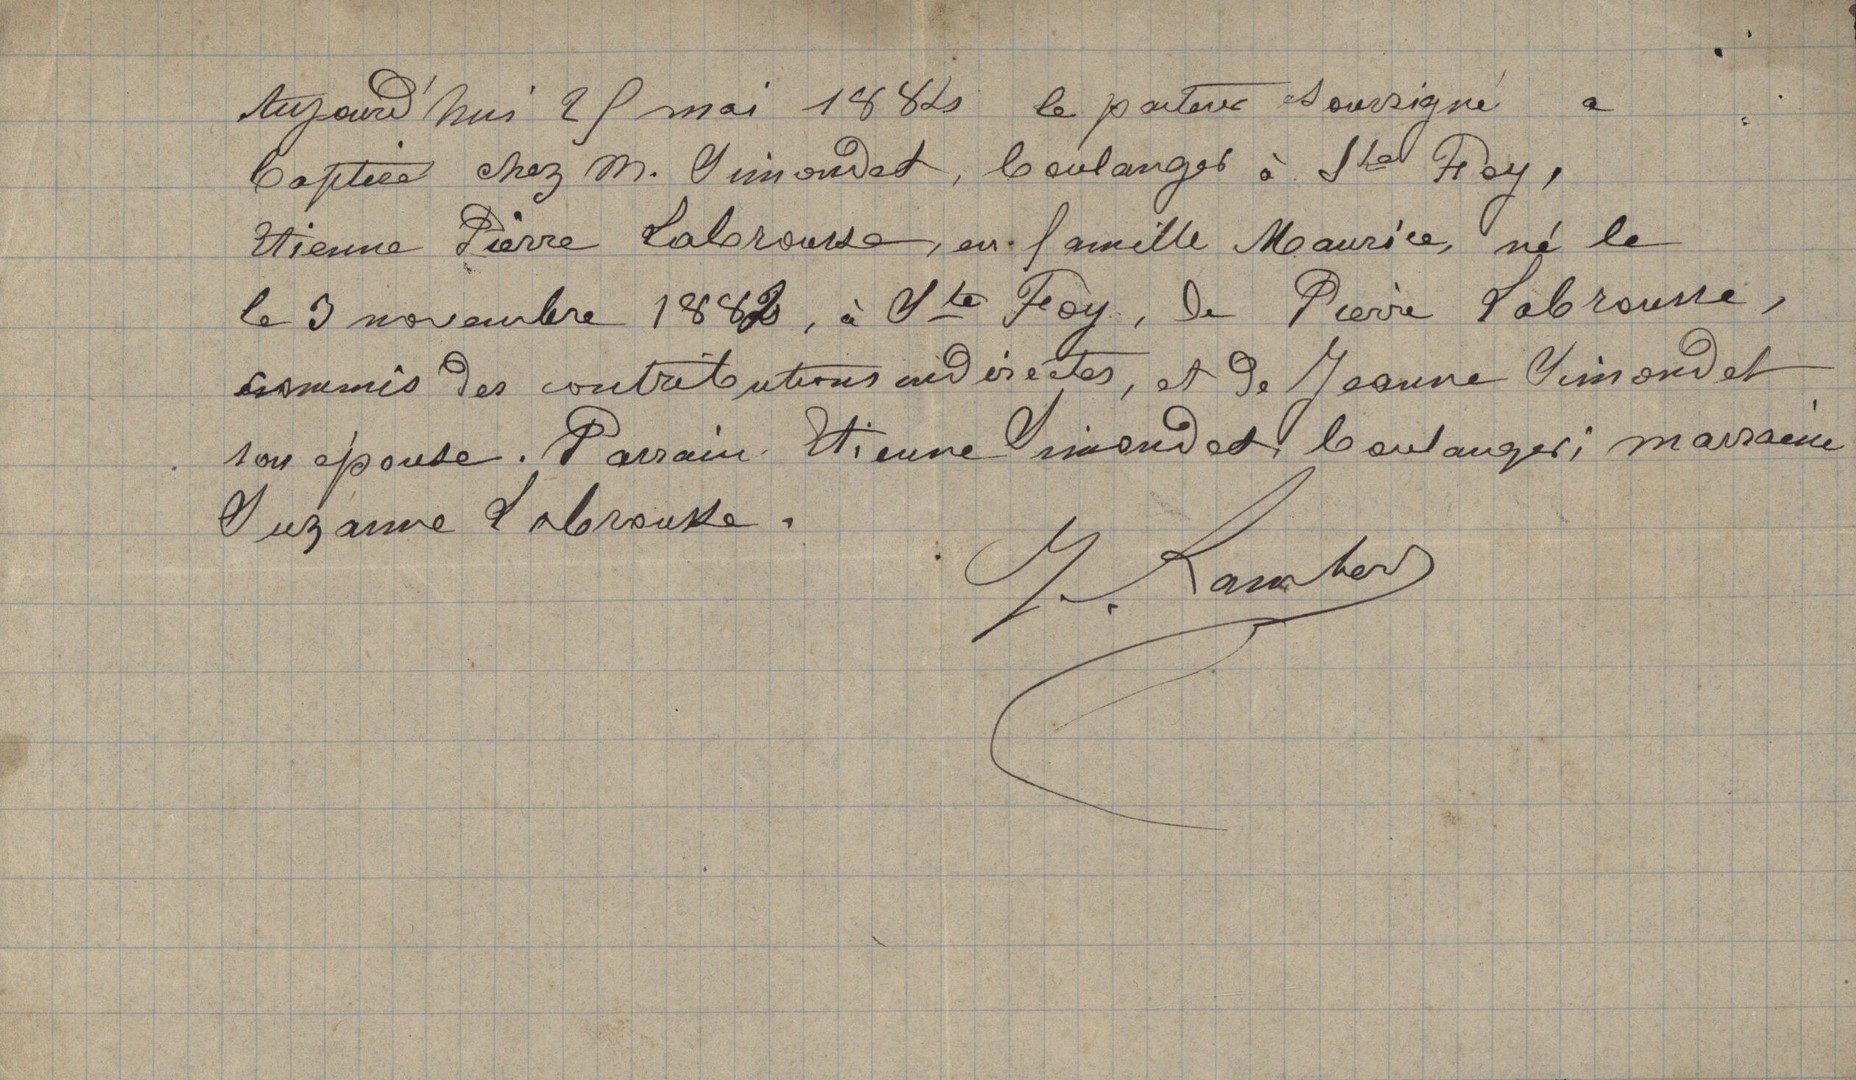 Aujourd'hui 25 mai 1884 le pasteur soussigné a
baptisé chez M. Simondet, boulanger à Ste Foy,
Etienne Pierre Labrousse, en famille Maurice, né le
le 3 novembre 1882, à Ste Foy, de Pierre Labrousse,
commis des contributions indirectes, et de Jeanne Simondet
son épouse. Parrain Etienne Simondet, boulanger; marraine
Suzanne Labrousse.